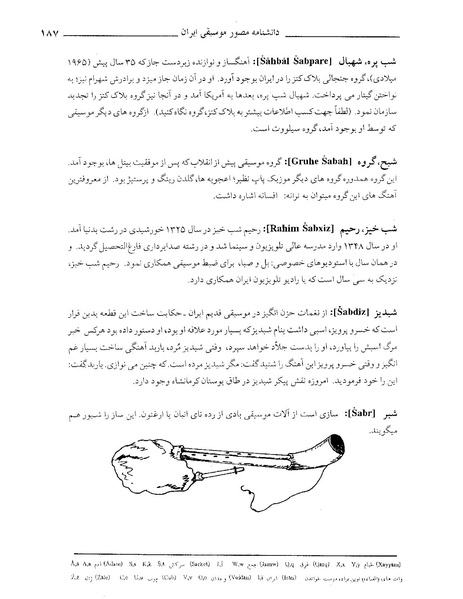 دانشنامه مصور موسیقی ایران ۱۸۷
شب پره، شهبال [Šahbál Šabpare]: آهنگساز و نوازنده زبردست جاز که ۳۵ سال پیش (۱۹۶۵
میلادی)، گروه جنجالی بلاک کتز را در ایران بوجود آورد. او در آن زمان جاز میزد و برادرش شهرام نیز؛ به
نواختن گیتار می پرداخت. شهبال شب پره، بعدها به آمریکا آمد و در آنجا نیز گروه بلاک کتز را تجدید
سازمان نمود. (لطفاً جهت کسب اطلاعات بیشتر به بلاک کتز، گروه نگاه کنید). از گروه های دیگر موسیقی
که توسط او بوجود آمد، گروه سیلووت است.
شبح، گروه [Gruhe Šabah]: گروه موسیقی پیش از انقلاب که پس از موفقیت بیتل ها، بوجود آمد.
این گروه همدوره گروه های دیگر موزیک پاپ نظیر؛ اعجوبه ها، گلدن رینگ و پرستیژ بود. از معروفترین
آهنگ های این گروه میتوان به ترانه: افسانه اشاره داشت.
شب خیز، رحیم [Rahim Šabxiz]: رحیم شب خیز در سال ۱۳۲۵ خورشیدی در رشت بدنیا آمد.
او در سال ۱۳۴۸ وارد مدرسه عالی تلویزیون و سینما شد و در رشته صدابرداری فارغ التحصیل گردید. و
در همان سال با استودیوهای خصوصی: بل و صبا، برای ضبط موسیقی همکاری نمود. رحیم شب خیز،
نزدیک به سی سال است که با رادیو تلویزیون ایران همکاری دارد.
شبدیز [Šabdiz]: از نغمات حزن انگیز در موسیقی قدیم ایران ـ حکایت ساخت این قطعه بدین قرار
است که خسرو پرویز، اسبی داشت بنام شبدیز که بسیار مورد علاقه او بود، او دستور داده بود هرکس خبر
مرگ اسبش را بیاورد، او را بدست جلاد خواهد سپرد. وقتی شبدیز مُرد، باربد آهنگی ساخت بسیار غم
انگیز و وقتی خسرو پرویز این آهنگ را شنید گفت: مگر شبدیز مرده است. که چنین می نوازی. باربد گفت:
این را خود فرمودید. امروزه نقش پیکر شبدیز در طاق بوستان کرمانشاه وجود دارد.
شبر [Šabr]: سازی است از آلات موسیقی بادی از رده نای انبان یا ارغنون. این ساز را شبور هم
میگویند.